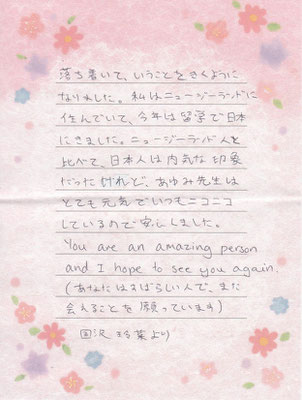 落ち着いて、いうことをきくように
なりました。私はニュージーランドに
住んでいて、今年は留学で日本
にきました。ニュージーランド人と
比べて、日本人は内気な印象
だったけれど、あゆみ先生は
とても元気でいつもニコニコ
しているので安心しました。
You are an amazing person
and I hope to see you again.
(あなたはすばらしい人で、また
会えることを願っています)
国沢 玲菜より